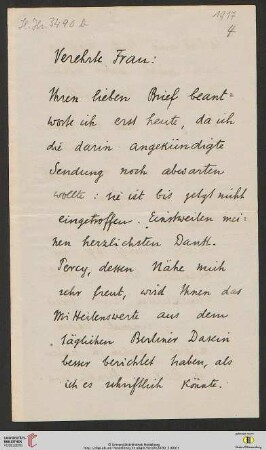 H. Hs. 3490 b
1917
4
Verehrte Frau:
Ihren lieben Brief beant-
worte ich erst heute, da ich
die darin angekündigte
Sendung noch abwarten
wollte: sie ist bis jetzt nicht
eingetroffen. Einstweilen mei-
nen herzlichsten Dank.
Percy, dessen Nähe mich
sehr freut, wird Ihnen das
Mitteilenswerte aus dem
täglichen Berliner Dasein
besser berichtet haben, als
ich es schriftlich könnte.
UNIVERSITÄTS-
BIBLIOTHEK
HEIDELBERG
© Universitätsbibliothek Heidelberg